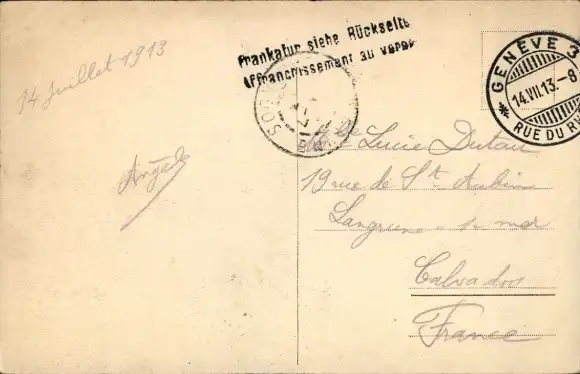 14 Juillet 1913
Frankatur siehe Rückseite
Affranchissement au verso
GENÈVE 3
14.VII.13.-8
RUE DU RH
Angèle
Mlle Lucie Dutau
19 rue de St. Aubin
Langrune s. mer
Calvados
France